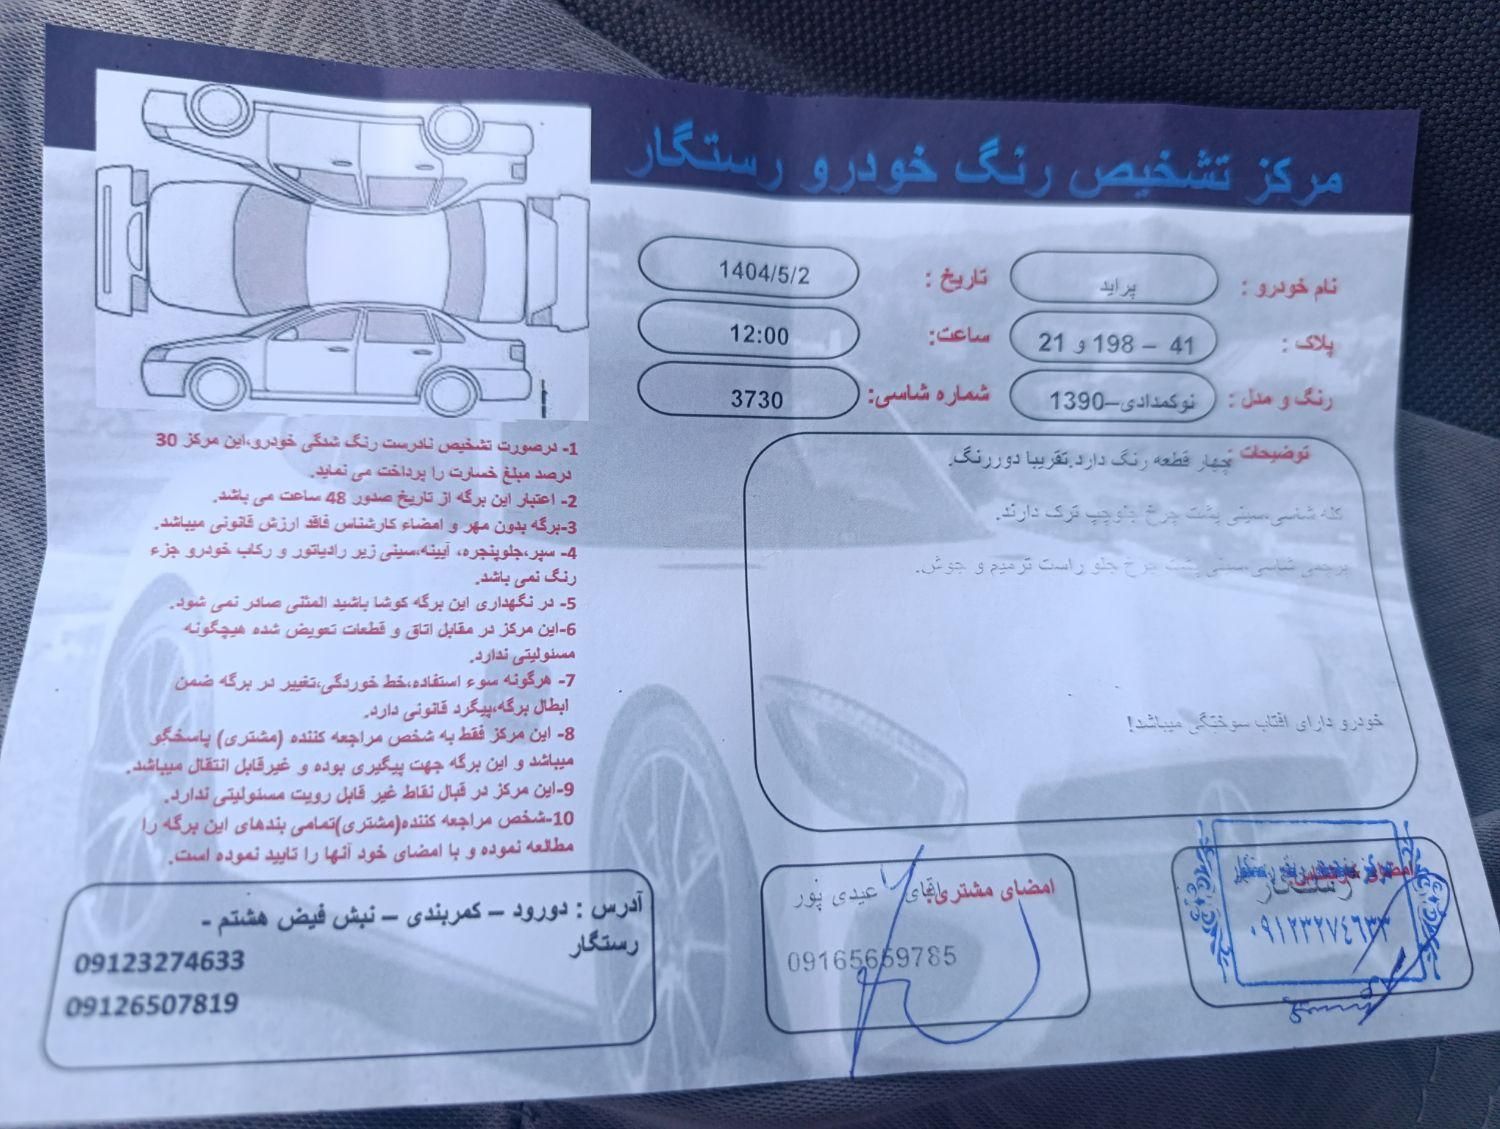 مرکز تشخیص رنگ خودرو رستگار
نام خودرو : پراید
تاریخ : 1404/5/2
پلاک : 41 – 198 و 21
ساعت: 12:00
رنگ و مدل : نوکمدادی–1390
شماره شاسی: 3730
توضیحات : چهار قطعه رنگ دارد.تقریبا دوررنگ.
کله شاسی،سینی پشت چرخ جلوچپ ترک دارند.
پرچمی شاسی،سینی پشت چرخ جلو راست ترمیم و جوش.
خودرو دارای افتاب سوختگی میباشد!
1- درصورت تشخیص نادرست رنگ شدگی خودرو،این مرکز 30
درصد مبلغ خسارت را پرداخت می نماید.
2- اعتبار این برگه از تاریخ صدور 48 ساعت می باشد.
3-برگه بدون مهر و امضاء کارشناس فاقد ارزش قانونی میباشد.
4- سپر،جلوپنجره، آیینه،سینی زیر رادیاتور و رکاب خودرو جزء
رنگ نمی باشد.
5- در نگهداری این برگه کوشا باشید المثنی صادر نمی شود.
6-این مرکز در مقابل اتاق و قطعات تعویض شده هیچگونه
مسئولیتی ندارد.
7- هرگونه سوء استفاده،خط خوردگی،تغییر در برگه ضمن
ابطال برگه،پیگرد قانونی دارد.
8- این مرکز فقط به شخص مراجعه کننده (مشتری) پاسخگو
میباشد و این برگه جهت پیگیری بوده و غیرقابل انتقال میباشد.
9-این مرکز در قبال نقاط غیر قابل رویت مسئولیتی ندارد.
10-شخص مراجعه کننده(مشتری)تمامی بندهای این برگه را
مطالعه نموده و با امضای خود آنها را تایید نموده است.
امضای
رستگار
۰۹۱۲۳۲۷٤٦۳۳
امضای مشتری: اقای عیدی پور
09165659785
آدرس : دورود – کمربندی – نبش فیض هشتم -
رستگار
09123274633
09126507819